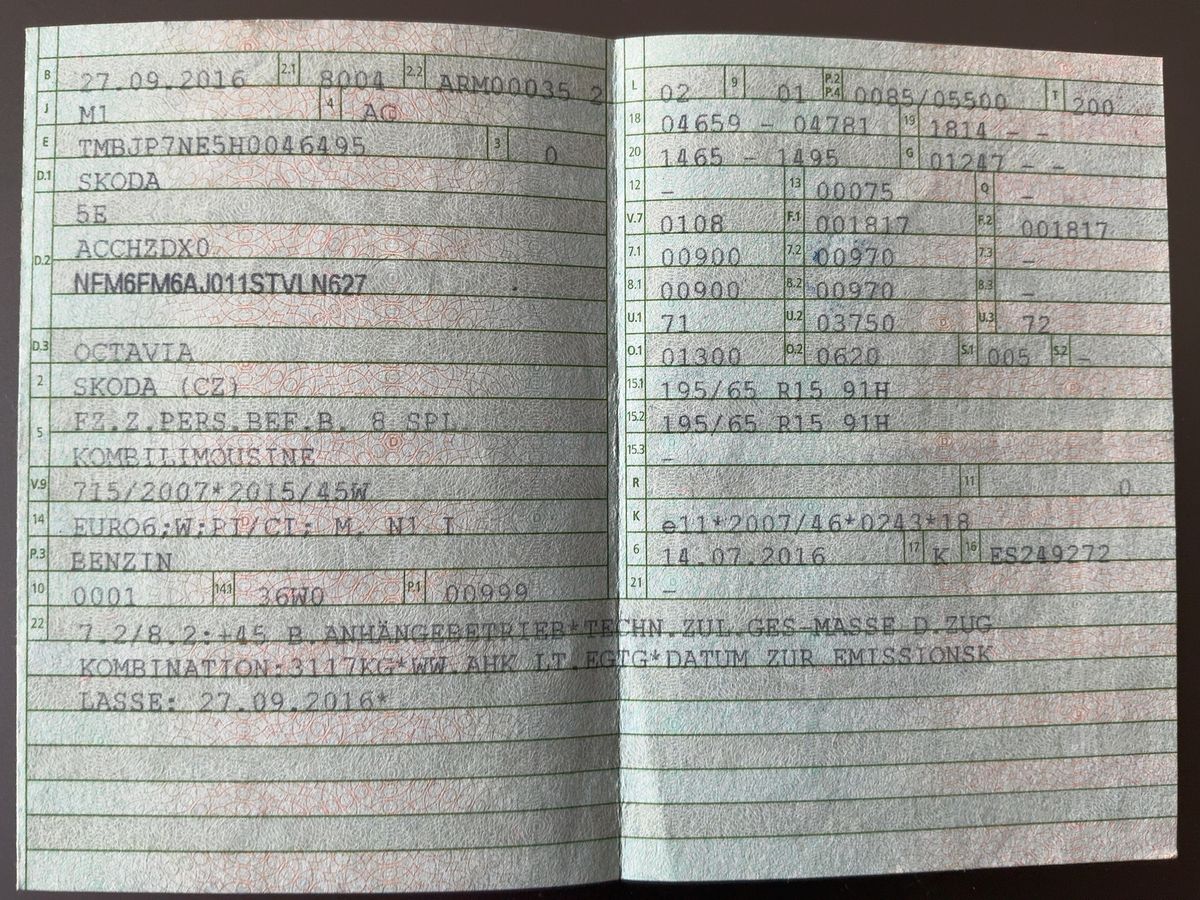 B 27.09.2016 2.1 8004 2.2 ARM00035 2
J M1 4 AC
E TMBJP7NE5H0046495 3 0
D.1 SKODA
D.2 5E
ACCHZDX0
NFM6FM6AJ011STVLN627
D.3 OCTAVIA
2 SKODA (CZ)
5 FZ.Z.PERS.BEF.B. 8 SPL.
KOMBILIMOUSINE
V.9 715/2007*2015/45W
14 EURO6;W;PI/CI; M, N1 I
P.3 BENZIN
10 0001 14.1 36W0 P.1 00999
L 02 9 01 P.2 P.4 0085/05500 T 200
18 04659 - 04781 19 1814 - -
20 1465 - 1495 G 01247 - -
12 - 13 00075 Q -
V.7 0108 F.1 001817 F.2 001817
7.1 00900 7.2 00970 7.3 -
8.1 00900 8.2 00970 8.3 -
U.1 71 U.2 03750 U.3 72
O.1 01300 O.2 0620 S.1 005 S.2 -
15.1 195/65 R15 91H
15.2 195/65 R15 91H
15.3 -
R 11 0
K e11*2007/46*0243*18
6 14.07.2016 17 K 16 ES249272
21 -
22 7.2/8.2:+45 B.ANHÄNGEBETRIEB*TECHN.ZUL.GES-MASSE D.ZUG
KOMBINATION:3117KG*WW.AHK LT.EGTG*DATUM ZUR EMISSIONSK
LASSE: 27.09.2016*